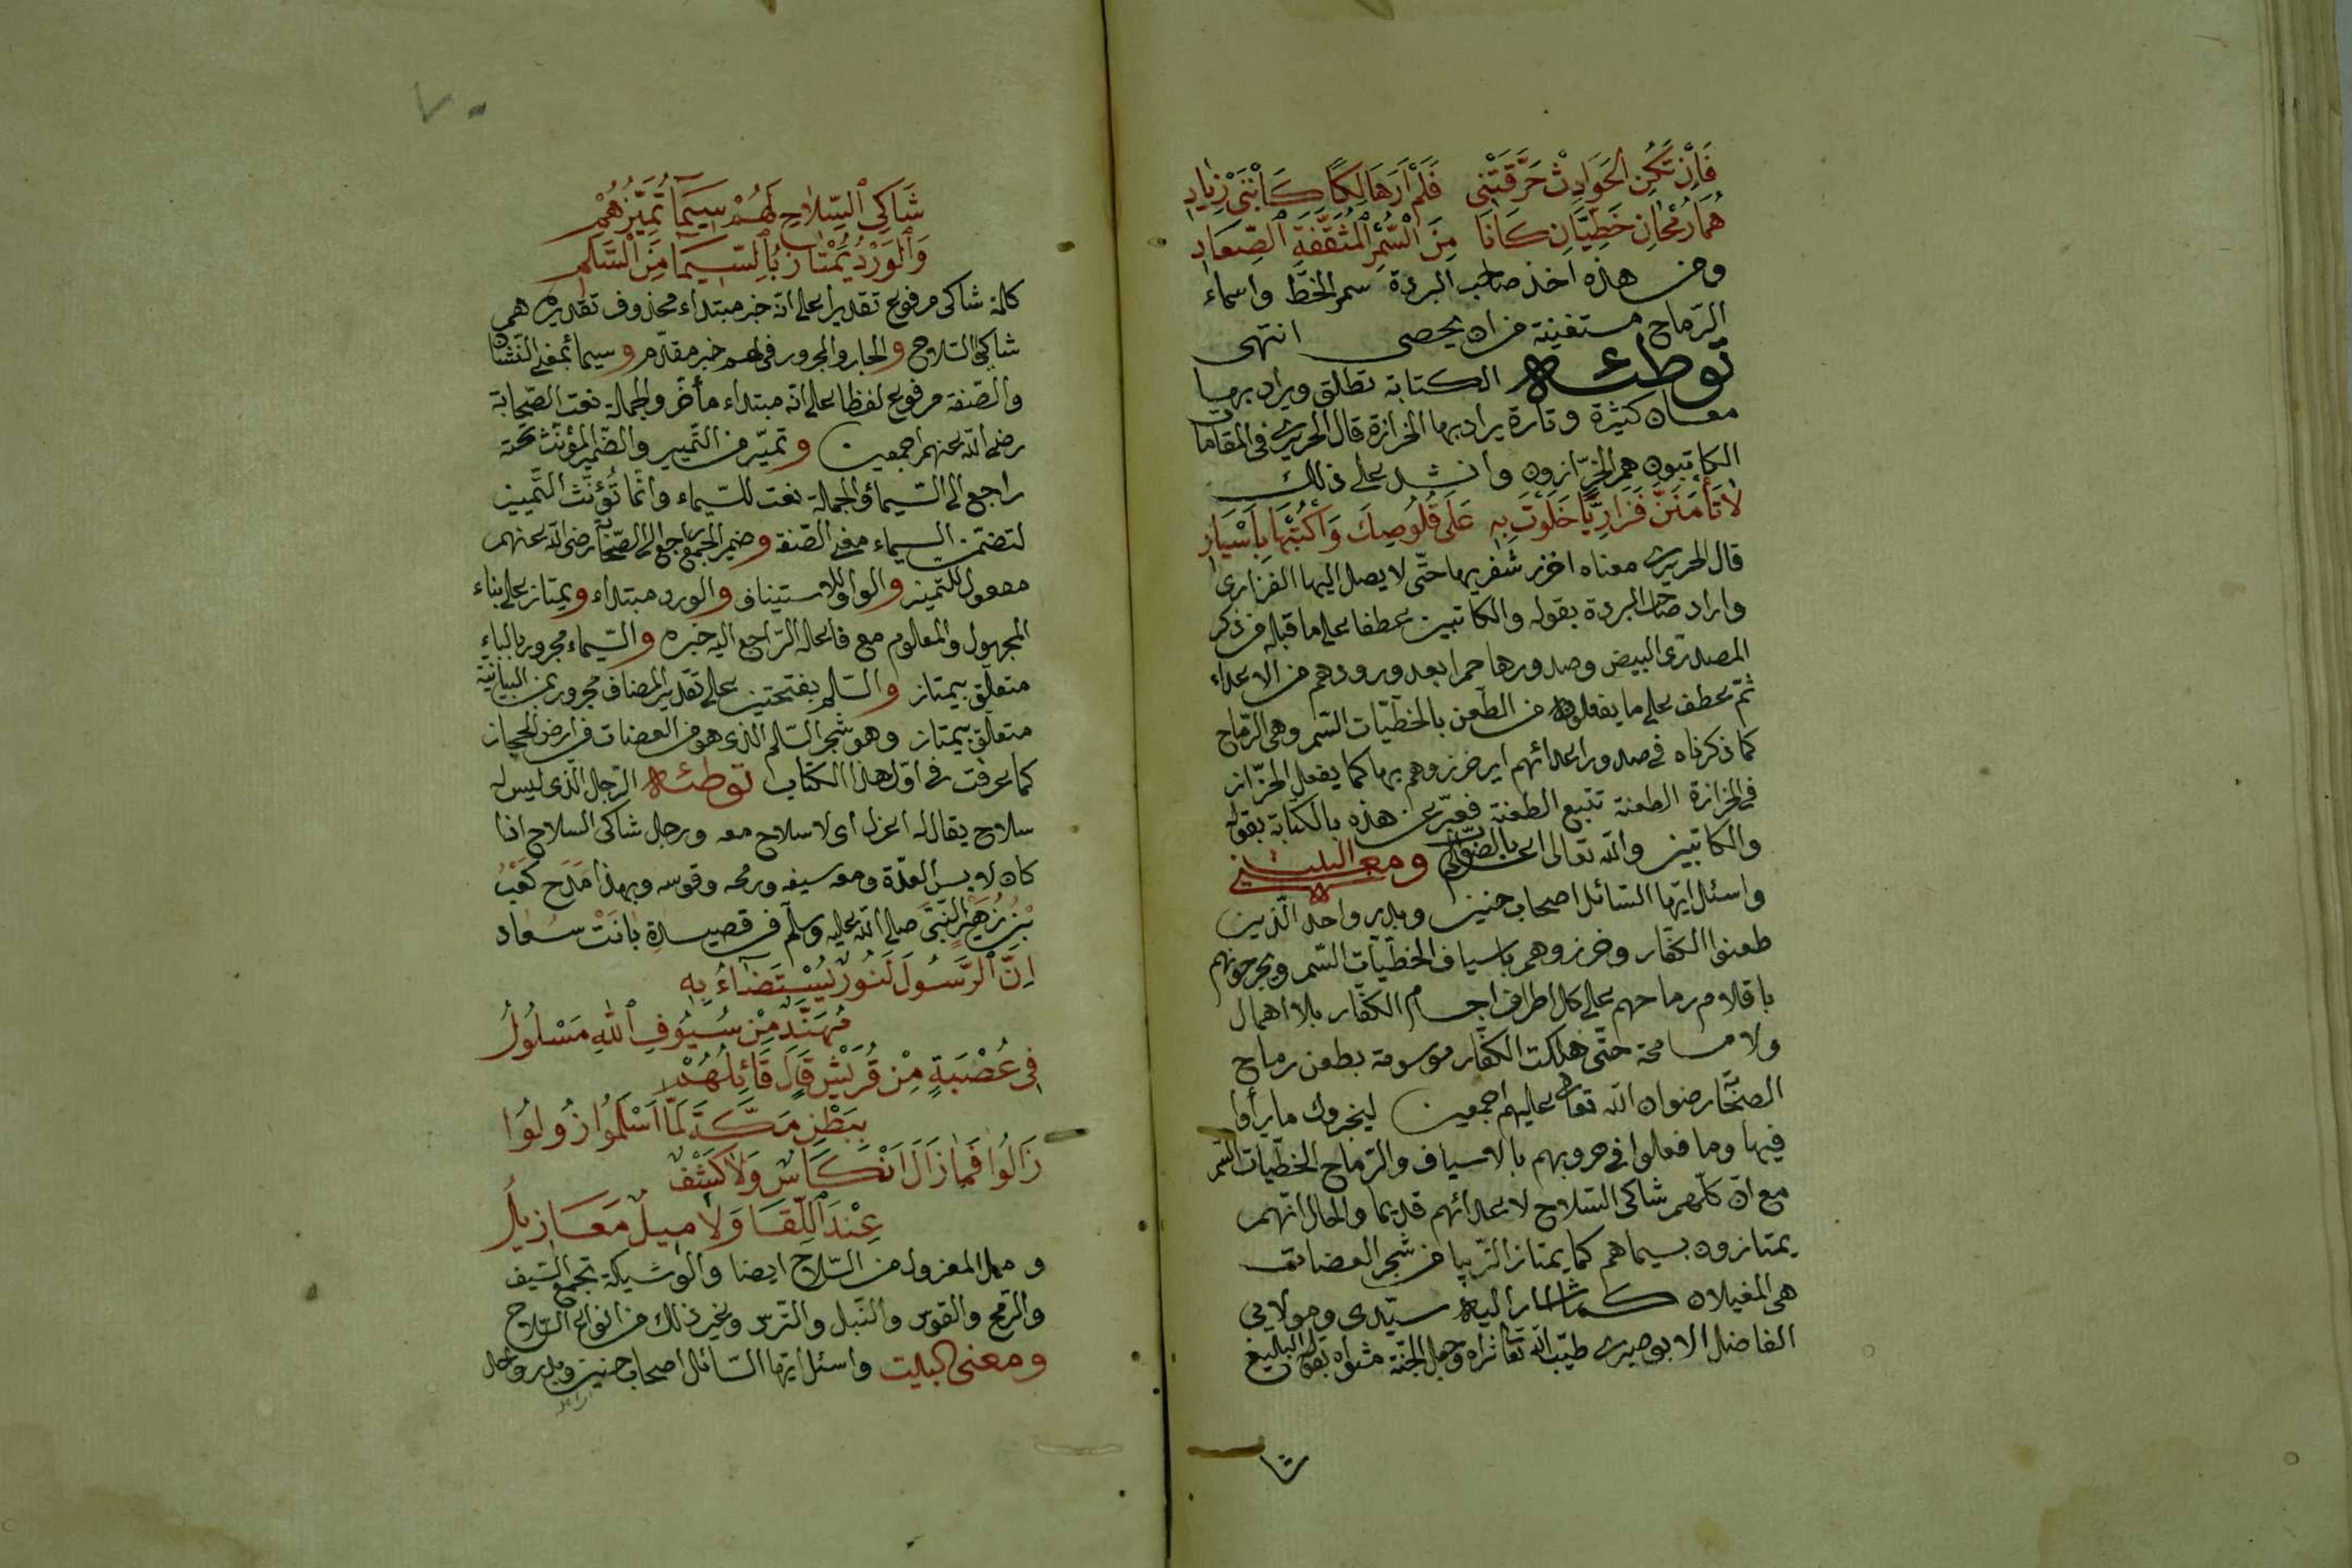 فَاِنْ تَكُنِ الحَوَادِثُ حَرَّقَتْنِى فَلَمْ اَرَ هَالِكًا كَابْنَىْ زِيَادِ
هُمَا رُمْحَانِ خَطِّيَّانِ كَانَا مِنَ السُّمْرِ الْمُثَقَّفَةِ الصِّعَادِ
ومن هذه اخذ صاحب البردة سمر الخطّ واسماء
الرّماح مستغنية من ان يحصى انتهى
توطئه الكتابة تطلق ويراد بها
معان كثيرة وتارة يراد بها الخرازة قال الحريرى فى المقامات
الكاتبون هم الخرّازون وانشد على ذلك
لَا تَأْمَنَنَّ فَزَارِيًّا خَلَوْتَ بِهِ عَلَى قَلُوصِكَ وَاكْتُبْهَا بِاَسْيَارِ
قال الحريرى معناه اخرز شفريها حتّى لا يصل اليها الفزارى
واراد صاحب البردة بقوله والكاتبين عطفا على ما قبله من ذكر
المصدرى البيض وصدورها حمرا بعد ورودهم من الاعداء
ثمّ عطف على ما يفعلونه من الطعن بالخطّيّات السّمر وهى الرّماح
كما ذكرناه فى صدور اعدائهم اى خرزوهم بها كما يفعل الخرّاز
فى الخرازة الطعنة تتبع الطعنة فعبّر عن هذه بالكتابة بقوله
والكاتبين والله تعالى اعلم بالصّواب ومعنى البليت
واسئل ايّها السّائل اصحاب حنين وبدر واحد الّذين
طعنوا الكفّار وخرزوهم باسياف الخطّيّات السّمر ويجرحونهم
باقلام رماحهم على كلّ اطراف اجسام الكفّار بلا اهمال
ولا مسامحة حتّى هلكت الكفّار موسومة بطعن رماح
الصّحابة رضوان الله تعالى عليهم اجمعين ليخبروك ما رأوا
فيها وما فعلوا فى حروبهم بالاسياف والرّماح الخطّيّات السّمر
مع انّ كلّهم شاكى السّلاح لاعدائهم قديما والحال انّهم
يمتازون بسيماهم كما يمتاز من شجر العضات
هى المغيلان كما اشار اليه سيّدى ومولايى
الفاضل الابوصيرى طيّب الله تعالى ثراه وجعل الجنّة مثواه بقوله البليغ
شا
٧٠
شَاكِى السِّلَاحِ لَهُمْ سِيمَا تُمَيِّزُهُمْ
وَالْوَرْدُ يَمْتَازُ بِالسِّيمَا مِنَ السَّلَمِ
كلمة شاكى مرفوع تقديرا على انّه خبر مبتداء محذوف تقديره هم
شاكى السّلاح والجار والمجرور فى لهم خبر مقدّم وسيما بمعنى النشان
والصّفة مرفوع لفظا على انّه مبتداء مأخّر والجملة نعت الصّحابة
رضى الله عنهم اجمعين وتميّز من التّمييز والضّمير المؤنّث تحته
راجع الى السّيماء والجملة نعت للسّيماء وانّما تُؤنّث التّمييز
لتضمّن السيماء معنى الصّفة وضمير الجمع راجع الى الصّحابة رضى الله عنهم
مفعول للتميز والواو للاستيناف والورد مبتداء ويمتاز على بناء
المجهول والمعلوم مع فاعله الرّاجع اليه خبره والسّيماء مجرور بالباء
متعلّق بيمتاز والسّلم بفتحتين على تقدير المضاف مجرور بمن البيانيّة
متعلّق بيمتاز وهو شجر السّلم الذى هو من العضات فى ارض الحجاز
كما عرفت فى اوّل هذا الكتاب توطئه الرّجل الّذى ليس له
سلاح يقال له اعزل اى لا سلاح معه ورجل شاكى السلاح اذا
كان لابس العدّة ومعه سيفه ورمحه وقوسه وبهذا مَدَح كَعْبُ
بْنُ زُهَيْرٍ النّبىَّ صلى الله عليه وسلّم فى قصيدة بانت سعاد
اِنَّ الرَّسُولَ لَنُورٌ يُسْتَضَاءُ بِهِ
مُهَنَّدٌ مِنْ سُيُوفِ اللهِ مَسْلُولُ
فِى عُصْبَةٍ مِنْ قُرَيْشٍ قَالَ قَائِلُهُمْ
بِبَطْنِ مَكَّةَ لَمَّا اَسْلَمُوا زُولُوا
زَالُوا فَمَا زَالَ اَنْكَاسٌ وَلَا كُشُفٌ
عِنْدَ اللِّقَا وَلَا مِيلٌ مَعَازِيلُ
و المعزول من السّلاح ايضا والوشيكة تجمع السّيف
والرّمح والقوس والنّبل والتّرس وغير ذلك من انواع السّلاح
ومعنى البليت واسئل ايّها السّائل اصحاب حنين وبدر واحد